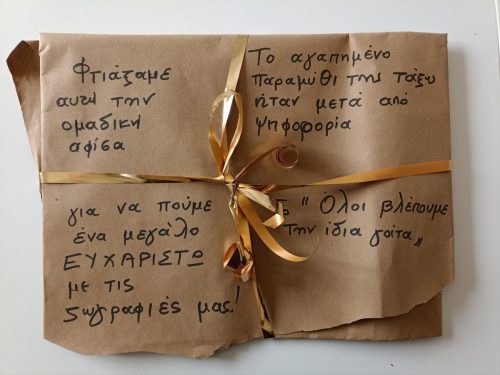 Φτιάξαμε
αυτή την
ομαδική
αφίσα
για να πούμε
ένα μεγάλο
ΕΥΧΑΡΙΣΤΩ
με τις
ζωγραφιές μας!
Το αγαπημένο
παραμύθι της τάξης
ήταν μετά από
ψηφοφορία
Το " Όλοι βλέπουμε
την ίδια γάτα„